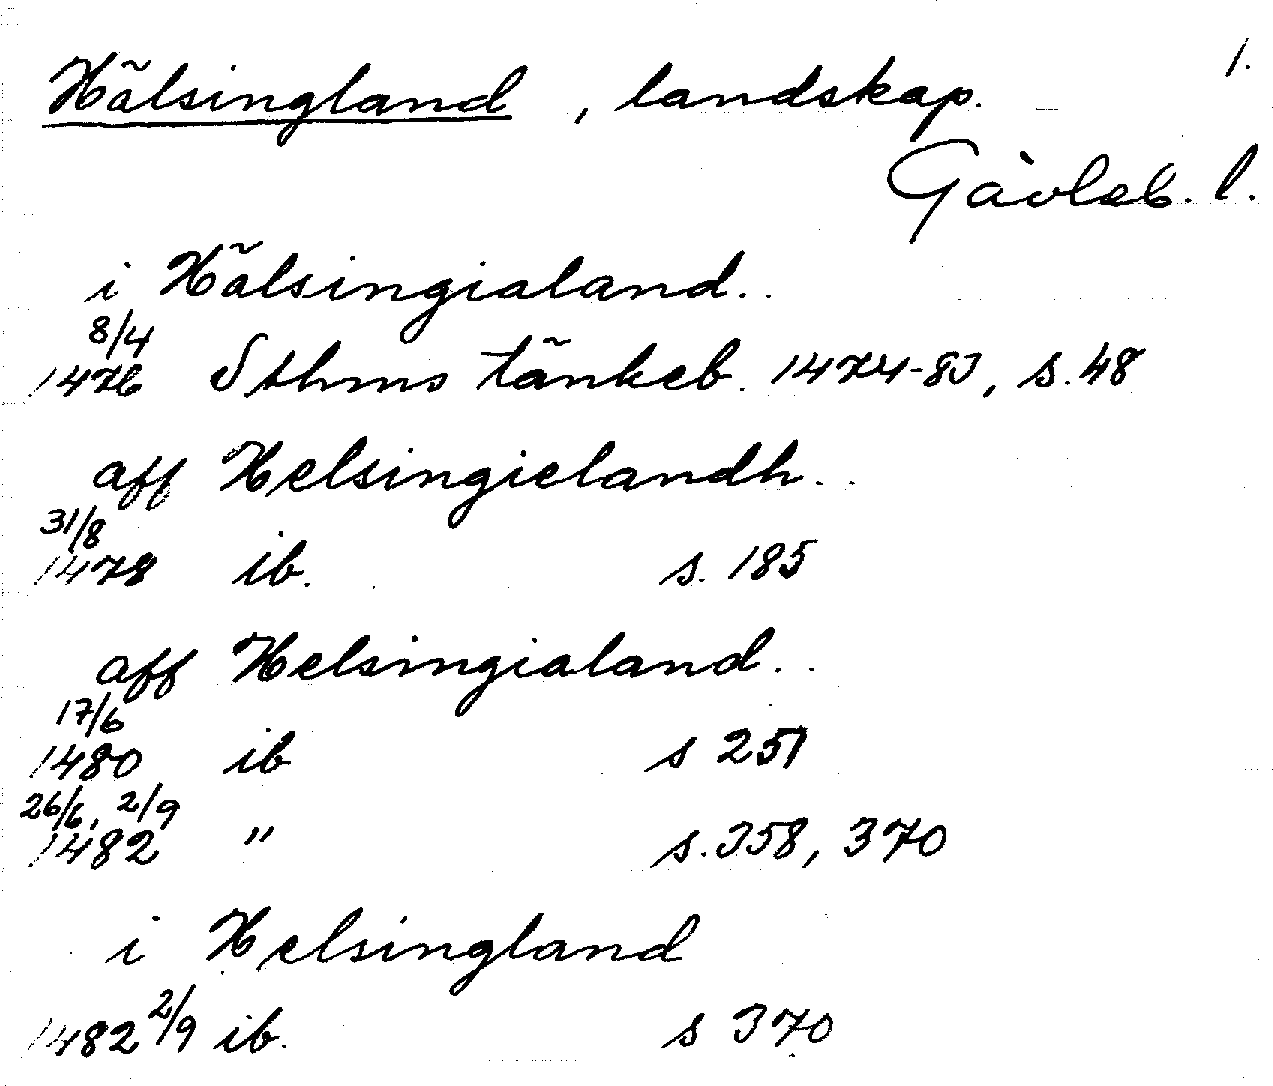 Hälsingland, landskap. 1.
Gävleb. l.
i Hälsingialand..
8/4
1476 Sthms tänkeb. 1474-83, s. 48
aff Helsingielandh..
31/8
1478 ib. s. 185
aff Helsingialand..
17/6
1480 ib s 251
26/6, 2/9
1482 " s. 358, 370
i Helsingland
1482 2/9 ib. s 370